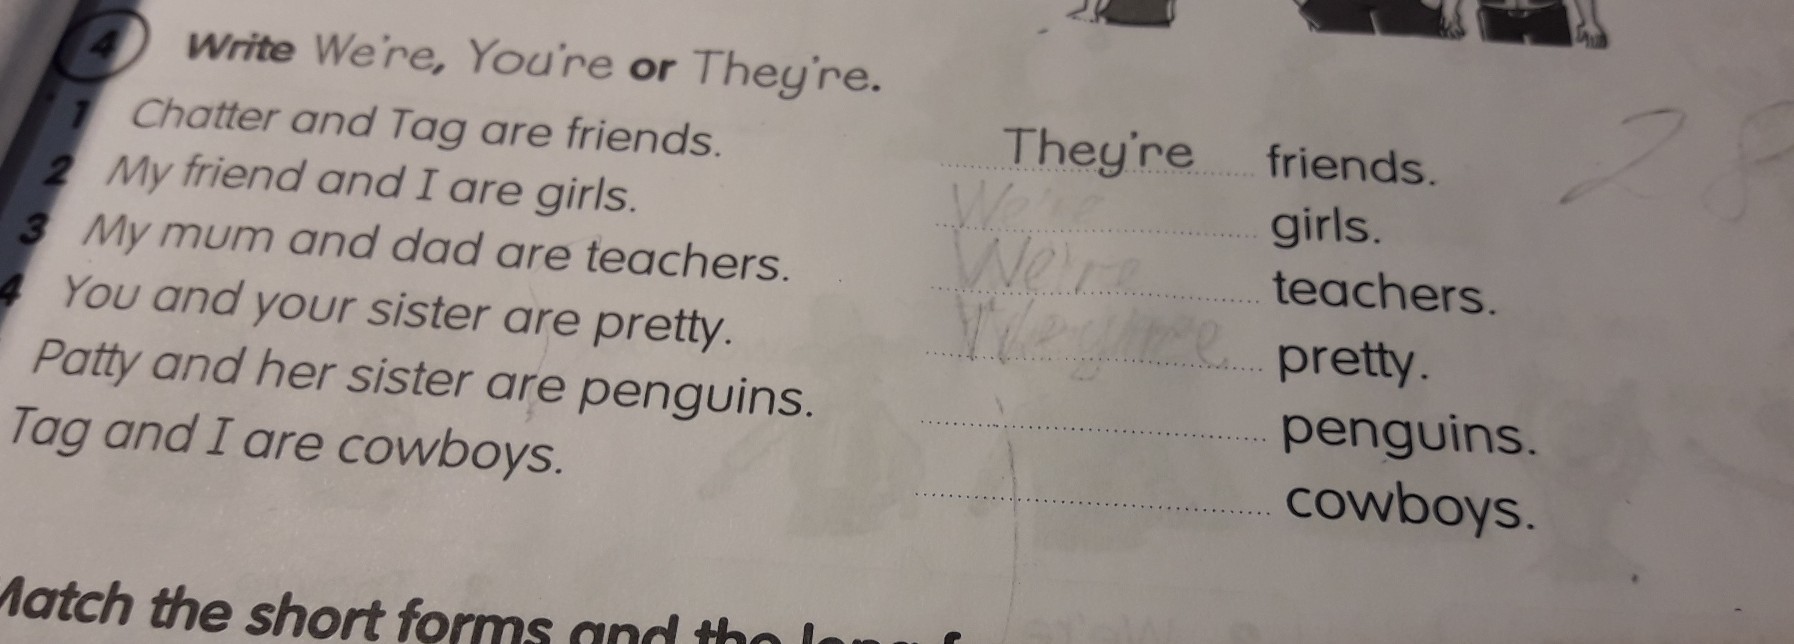 4 Write We're, You're or They're.
1 Chatter and Tag are friends. They're friends.
2 My friend and I are girls. We're girls.
3 My mum and dad are teachers. We're teachers.
4 You and your sister are pretty. pretty.
Patty and her sister are penguins. penguins.
Tag and I are cowboys. cowboys.
Match the short forms and the
28